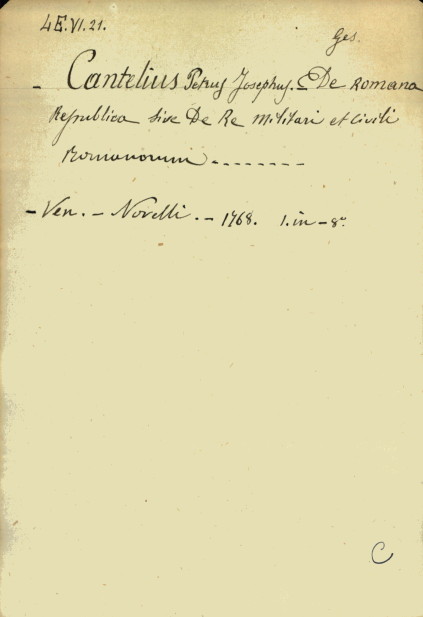 4E.VI.21.
Ges.
- Cantelius Petrus Josephus. = De Romana
Republica sive De Re Militari et Civili
Romanorum . - - - - - - - -
- Ven. - Novelli. - 1768. 1. in - 8°.
C